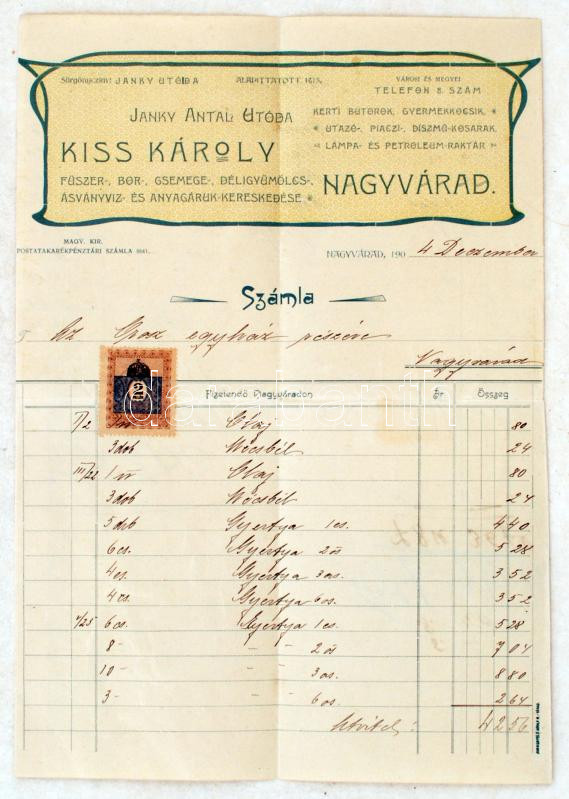 Sürgönyczim: JANKY UTÓDA
ALAPITTATOTT 1815.
VÁROSI ÉS MEGYEI
TELEFON 8. SZÁM
JANKY ANTAL UTÓDA
KISS KÁROLY
FÜSZER-, BOR-, CSEMEGE-, DÉLIGYÜMÖLCS-,
ÁSVÁNYVIZ- ÉS ANYAGÁRUK-KERESKEDÉSE.
KERTI BUTOROK, GYERMEKKOCSIK,
UTAZÓ-, PIACZI-, DÍSZMŰ-KOSARAK,
LÁMPA- ÉS PETROLEUM-RAKTÁR
NAGYVÁRAD.
MAGY. KIR.
POSTATAKARÉKPÉNZTÁRI SZÁMLA
NAGYVÁRAD, 190 4 Deczember
Számla
Az Orosz egyház részére
Nagyvárad
2
Fizetendő Nagyváradon Ér Összeg
I/2 Olaj 80
3 dob Mécsbél 24
III/22 1 Olaj 80
3 dob Mécsbél 24
5 drb Gyertya 1 es. 4 40
6 cs. Gyertya 2 ös 5 28
4 cs. Gyertya 3 as. 3 52
4 cs. Gyertya 6 os. 3 52
/25 6 cs. Gyertya 1 es. 5 28
8 - - - 2 ös 7 04
10 - - - 3 as. 8 80
3 - - - 6 os. 2 64
Átvitel: 42 56
darabanth